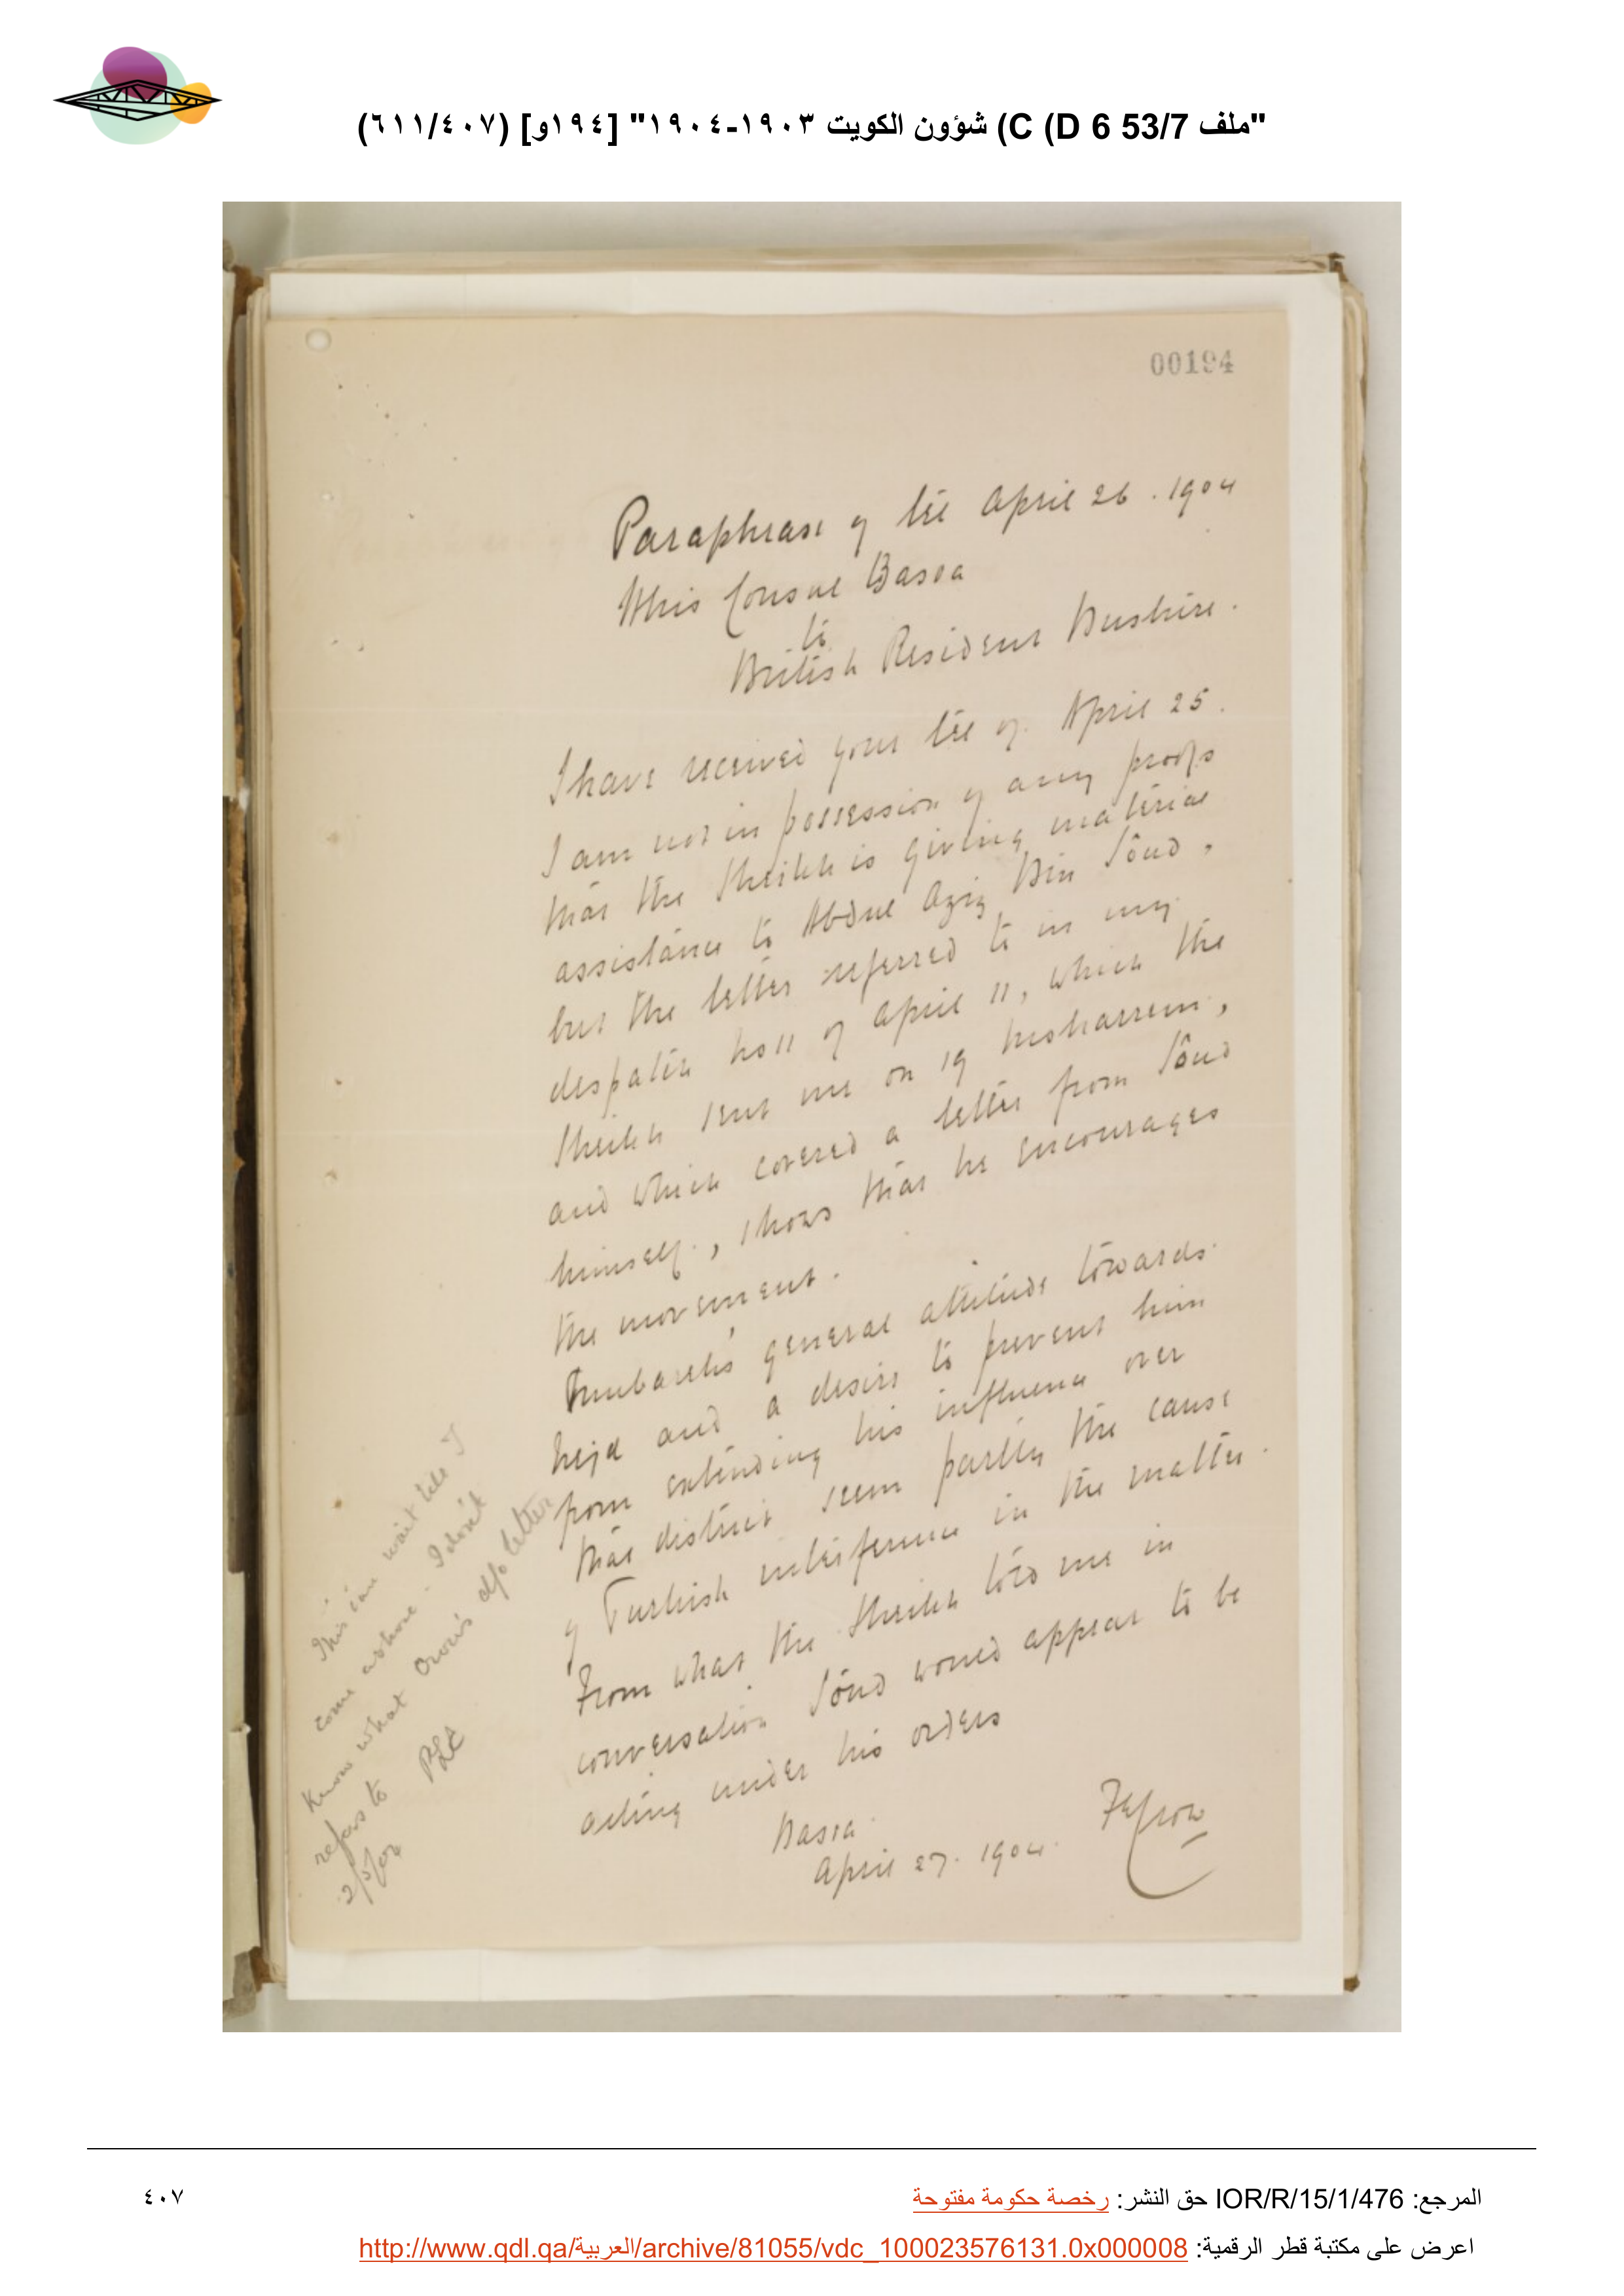 "ملف 53/7 C (D 6) شؤون الكويت ١٩٠٣-١٩٠٤" [١٩٤و] (٦١١/٤٠٧)
00194
Paraphrase of tel April 26. 1904
His Consul Basra
to
British Resident Bushire.
I have received your tel of April 25.
I am not in possession of any proofs
that the Sheikh is giving material
assistance to Abdul Aziz Bin Sôud,
but the letter referred to in my
despatch No 11 of April 11, which the
Sheikh sent me on 19 Moharrem,
and which covered a letter from Sôud
himself, shows that he encourages
the movement.
Mubarek's general attitude towards
Nejd and a desire to prevent him
from extending his influence over
that district seem partly the cause
of Turkish interference in the matter.
From what the Sheikh told me in
conversation Sôud would appear to be
acting under his orders
Basra
April 27. 1904.
This can wait till I
come ashore. I don't
know what Crow's d/o letter
refers to
2/5/04
المرجع: IOR/R/15/1/476 حق النشر: رخصة حكومة مفتوحة
٤٠٧
اعرض على مكتبة قطر الرقمية: http://www.qdl.qa/العربية/archive/81055/vdc_100023576131.0x000008